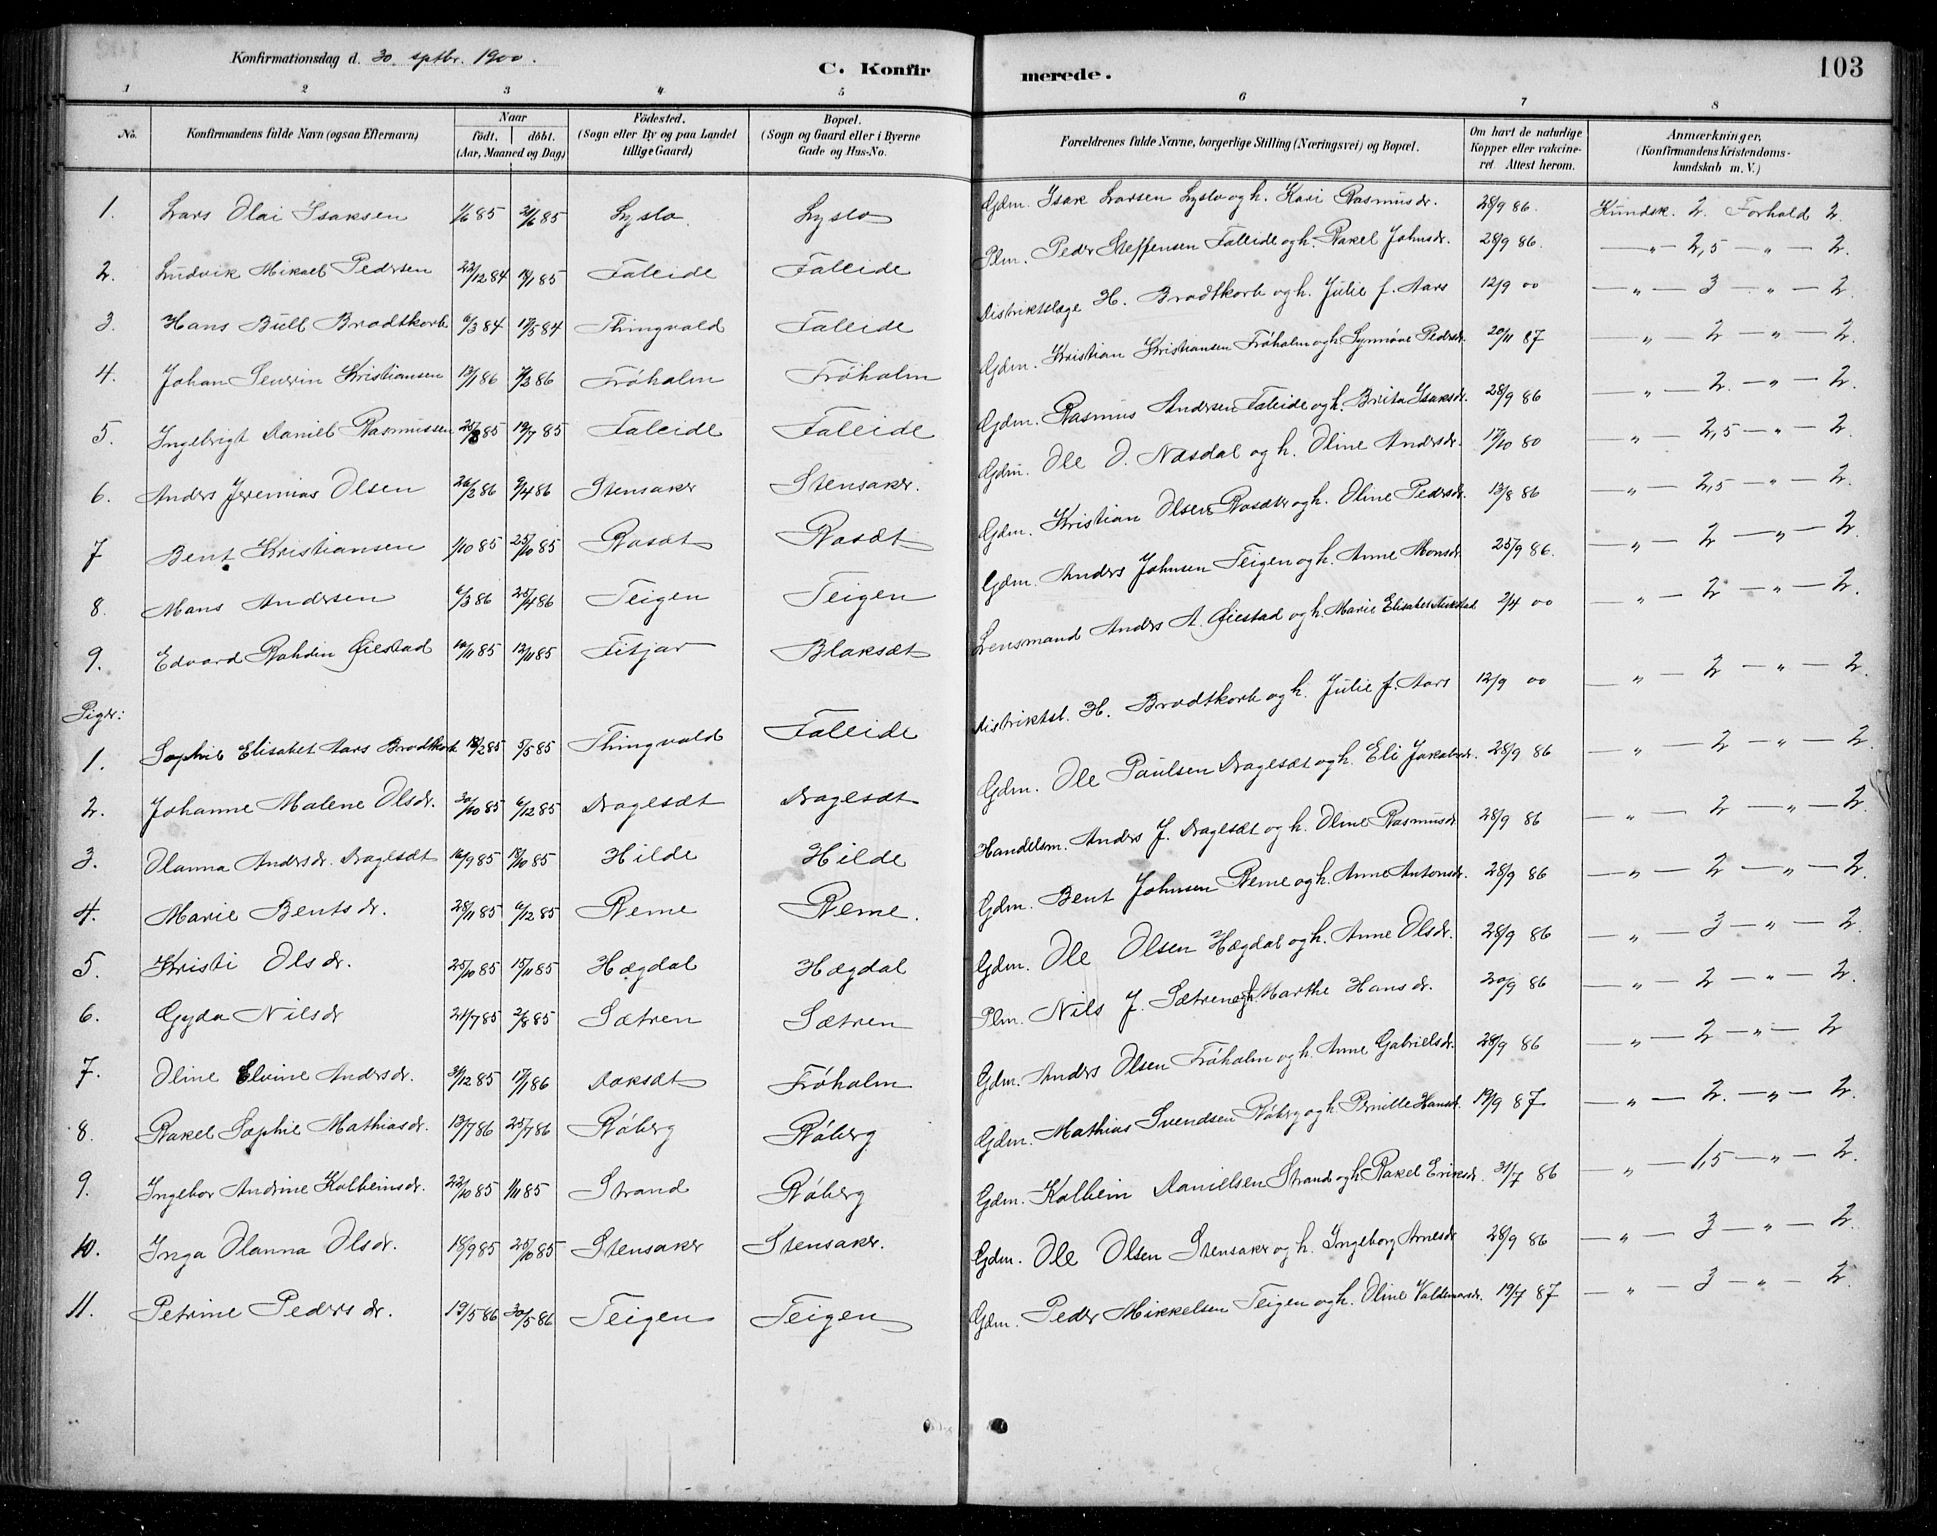 Konfirmationsdag d. 30. sptbr. 1900.
C. Konfir merede.
103
1 2 3 4 5 6 7 8
No. Konfirmandens fulde Navn (ogsaa Efternavn) Naar født. døbt. (Aar, Maaned og Dag) Fødested. (Sogn eller By og paa Landet tillige Gaard) Bopæl. (Sogn og Gaard eller i Byerne Gade og Hus-No. Forældrenes fulde Navne, borgerlige Stilling (Næringsvei) og Bopæl. Om havt de naturlige Kopper eller vakcineret. Attest herom. Anmærkninger. (Konfirmandens Kristendomskundskab m. V.)
1. Lars Olai Isaksen 1/6 85 21/6 85 Lyslo Lyslo Gdm. Isak Larsen Lyslo og h. Kari Rasmusdr. 28/9 86. Kundsk. 2. Forhold 2.
2. Ludvik Mikael Pedersen 22/12 84 /1 85 Faleide Faleide Plm. Peder Steffensen Faleide og h. Rakel Johnsdr. 28/9 86. — " — 2,5 — " — 2.
3. Hans Bull Brodtkorb 6/3 84 17/5 84 Thingvold Faleide Distriktslæge H. Brodtkorb og h. Julie f. Aars 12/9 00 — " — 3 — " — 2.
4. Johan Severin Kristiansen 13/1 86 /3 86 Frøholm Frøholm Gdm. Kristian Kristiansen Frøholm og h. Synnøve Pedersdr. 20/11 87 — " — 2 — " — 2.
5. Ingebrigt Daniel Rasmussen 25/3 85 19/7 85 Faleide Faleide Gdm. Rasmus Andersen Faleide og h. Brita Isaksdr. 28/9 86 — " — 2. — " — 2.
6. Anders Jeremias Olsen 26/2 86 9/4 86 Stensaker Stensaker. Gdm. Ole O. Næsdal og h. Oline Andersdr. 17/10 80 — " — 2,5 — " — 2.
7 Bent Kristiansen 1/10 85 25/10 85 Rosæt Rosæt Gdm. Kristian Olsen Rosæt og h. Oline Pedersdr. 13/8 86 — " — 2,5 — " — 2.
8. Mons Andersen 6/3 86 25/4 86 Teigen Teigen Gdm. Anders Johnsen Teigen og h. Anne Monsdr. 25/9 86. — " — 2 — " — 2.
9. Edvard Rohdin Øiestad 10/11 85 12/11 85 Fitjar Blaksæt Lensmand Anders A. Øiestad og h. Marie Elisabet 2/4 00 — " — 2 — " — 2.
Piger:
1. Sophie Elisabet Aars Brodtkorb 18/2 85 5/5 85 Thingvold Faleide Distriktsl. H. Brodtkorb og h. Julie f. Aars 12/9 00 — " — 2 — " — 2.
2. Johanne Malene Olsdr. 30/10 85 6/12 85 Dragesæt Dragesæt Gdm. Ole Paulsen Dragesæt og h. Eli Jakobsdr. 28/9 86 — " — 2 — " — 2.
3. Olanna Andersdr. Dragesæt 16/9 85 18/10 85 Hilde Hilde Handelsm. Anders J. Dragesæt og h. Oline Rasmusdr 28/9 86 — " — 2 — " — 2.
4. Marie Bentsdr. 28/11 85 6/12 85 Reme Reme. Gdm. Bent Johnsen Reme og h. Anne Antonsdr. 28/9 86 — " — 2 — " — 2.
5. Kristi Olsdr. 25/10 85 15/11 85 Hægdal Hægdal Gdm. Ole Olsen Hægdal og h. Anne Olsdr. 28/9 86 — " — 3 — " — 2.
6. Gyda Nilsdr 21/7 85 2/8 85 Sætren Sætren Plm. Nils J. Sætren og h. Marthe Hansdr. 20/9 86 — " — 2 — " — 2.
7. Oline Elvine Andersdr. 31/12 85 17/1 86 Doksæt Frøholm Gdm. Anders Olsen Frøholm og h. Anne Gabrielsdr. 28/9 86 — " — 2 — " — 2
8. Rakel Sophie Mathiasdr. 13/7 86 25/7 86 Røberg Røberg Gdm. Mathias Svendsen Røberg og h. Pernille Hansdr. 19/9 87 — " — 2. — " — 2.
9. Ingebor Andrine Kolbeinsdr. 22/10 85 1/11 85 Strand Røberg Gdm. Kolbein Danielsen Strand og h. Rakel Eriksdr. 31/7 86 — " — 1,5 — " — 2.
10. Inga Olanna Olsdr. 18/9 85 25/10 85 Stensaker Stensaker. Gdm. Ole Olsen Stensaker og h. Ingeborg Arnesdr 28/9 86 — " — 3 — " — 2.
11. Petrine Pedersdr. 19/5 86 30/5 86 Teigen Teigen Gdm. Peder Mikkelsen Teigen og h. Oline Valdemarsdr. 19/7 87 — " — 3 — " — 2.